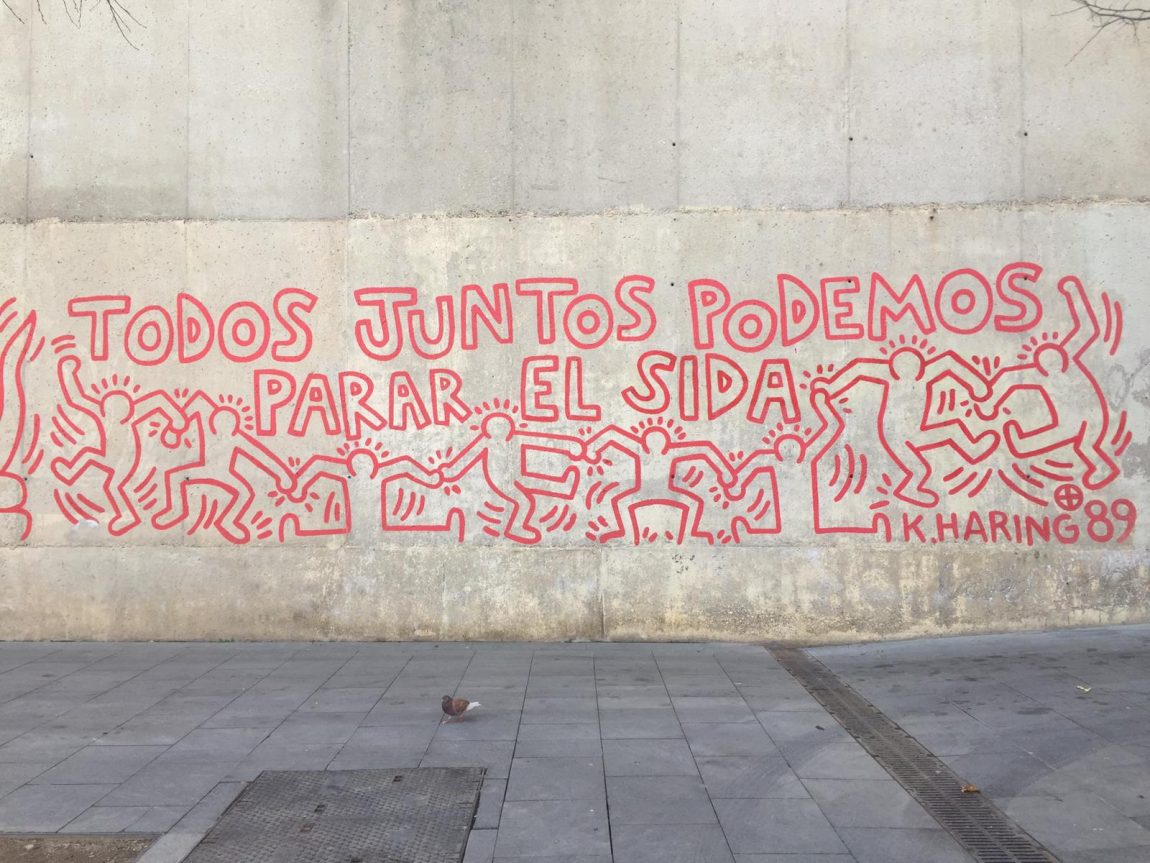 TODOS JUNTOS PODEMOS
PARAR EL SIDA
K.HARING 89